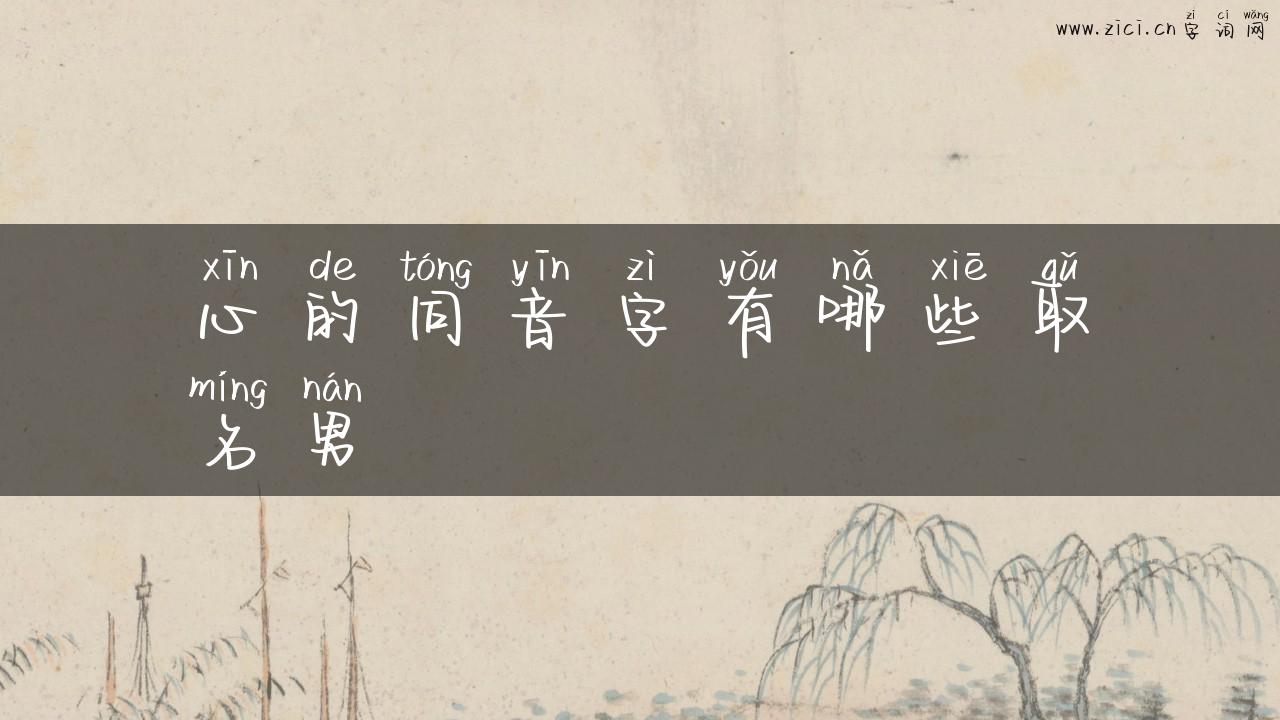 zì cí wǎng
www.zici.cn 字词网
xīn de tóng yīn zì yǒu nǎ xiē qǔ
心的同音字有哪些取
míng nán
名男